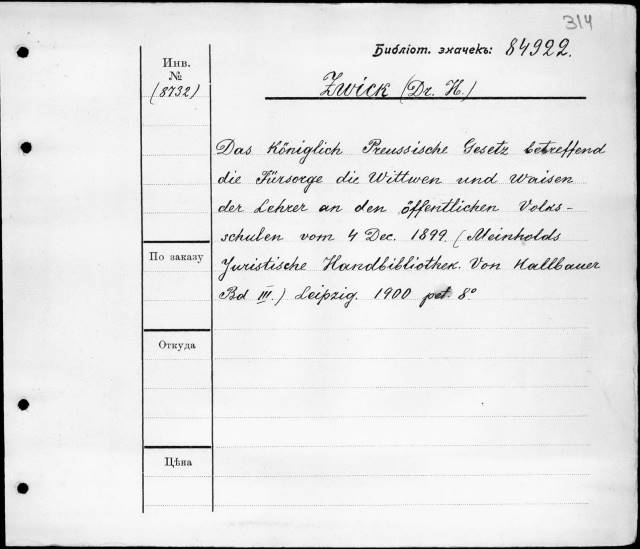 314
Библіот. значекъ: 84922.
Инв.
№
(8732)
Zwick (Dr. H.)
Das Königlich Preussische Gesetz betreffend
die Fürsorge die Wittwen und Waisen
der Lehrer an den öffentlichen Volks-
schulen vom 4 Dec. 1899. (Meinholds
Juristische Handbibliothek. Von Hallbauer
Bd III.) Leipzig. 1900 pet. 8°
По заказу
Откуда
Цѣна